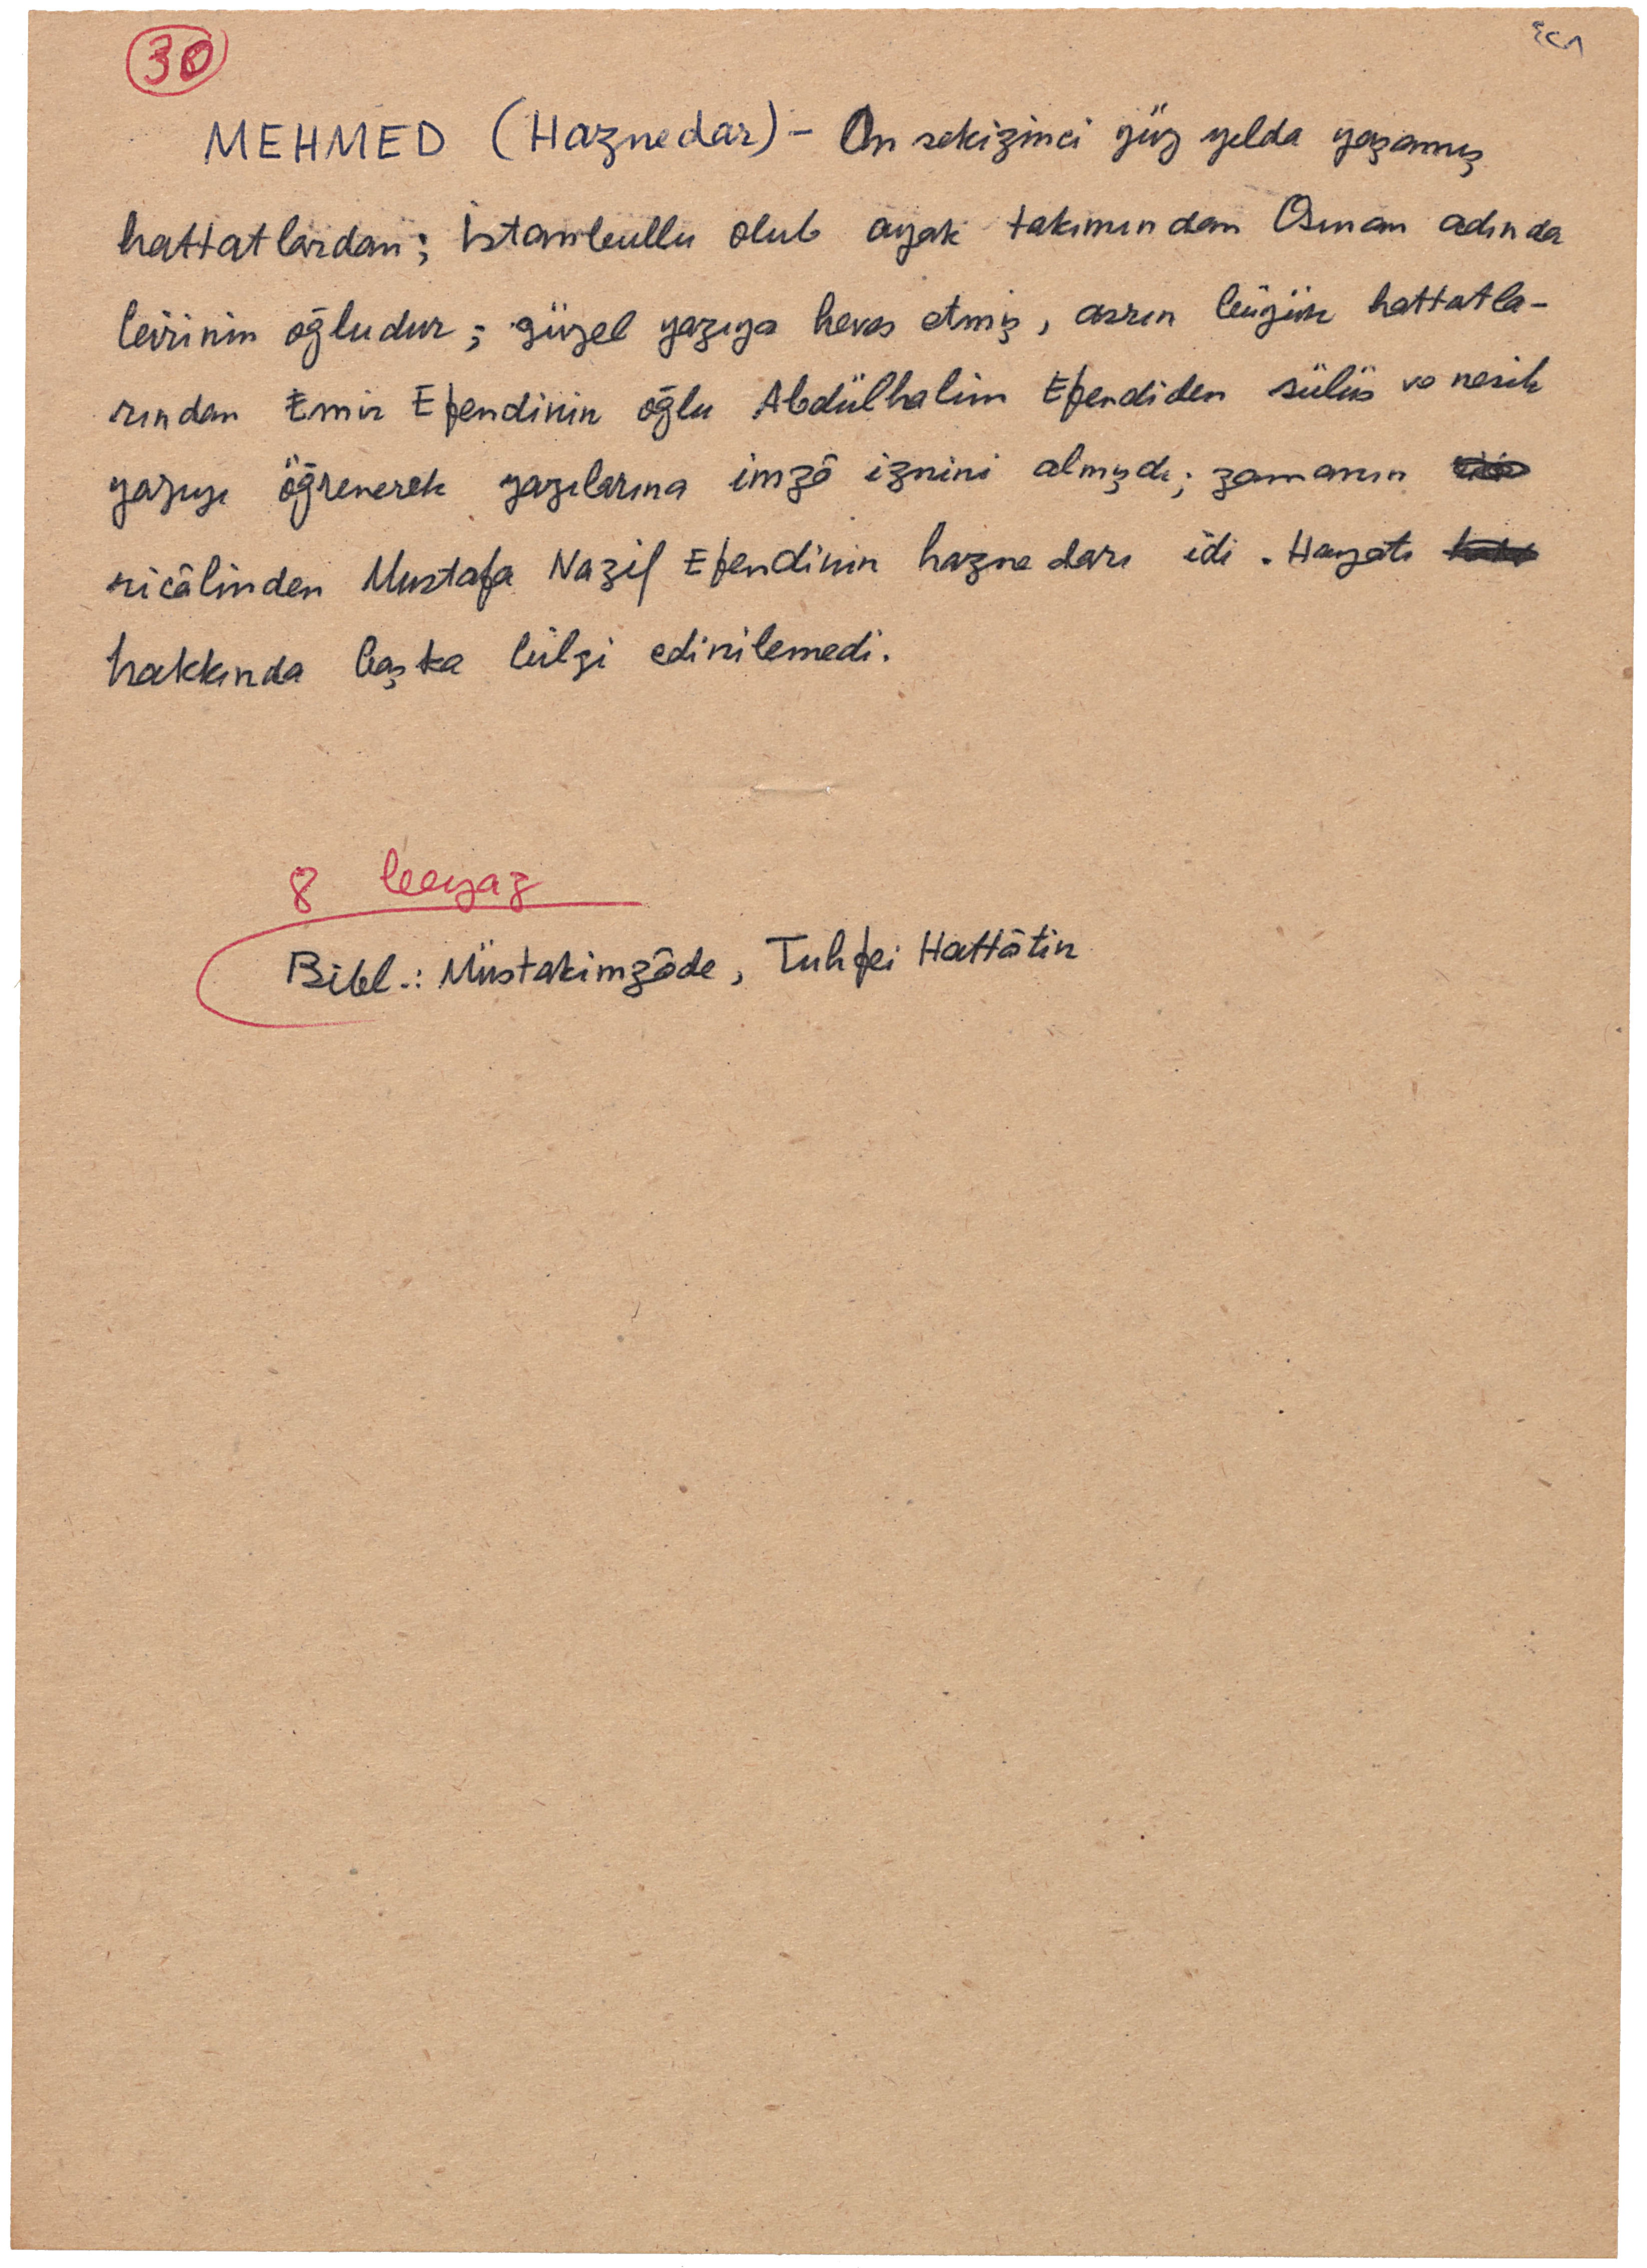 30
MEHMED (Haznedar) – On sekizinci yüz yılda yaşamış
hattatlardan; İstanbullu olub ayak takımından Osman adında
birinin oğludur; güzel yazıya heves etmiş, asrın büyük hattatla-
rından Emir Efendinin oğlu Abdülhalim Efendiden sülüs ve nesih
yazıyı öğrenerek yazılarına imzâ iznini almışdı; zamanın
ricâlinden Mustafa Nazif Efendinin haznedarı idi. Hayatı
hakkında başka bilgi edinilemedi.
8 beyaz
Bibl.: Müstakimzâde, Tuhfei Hattâtin